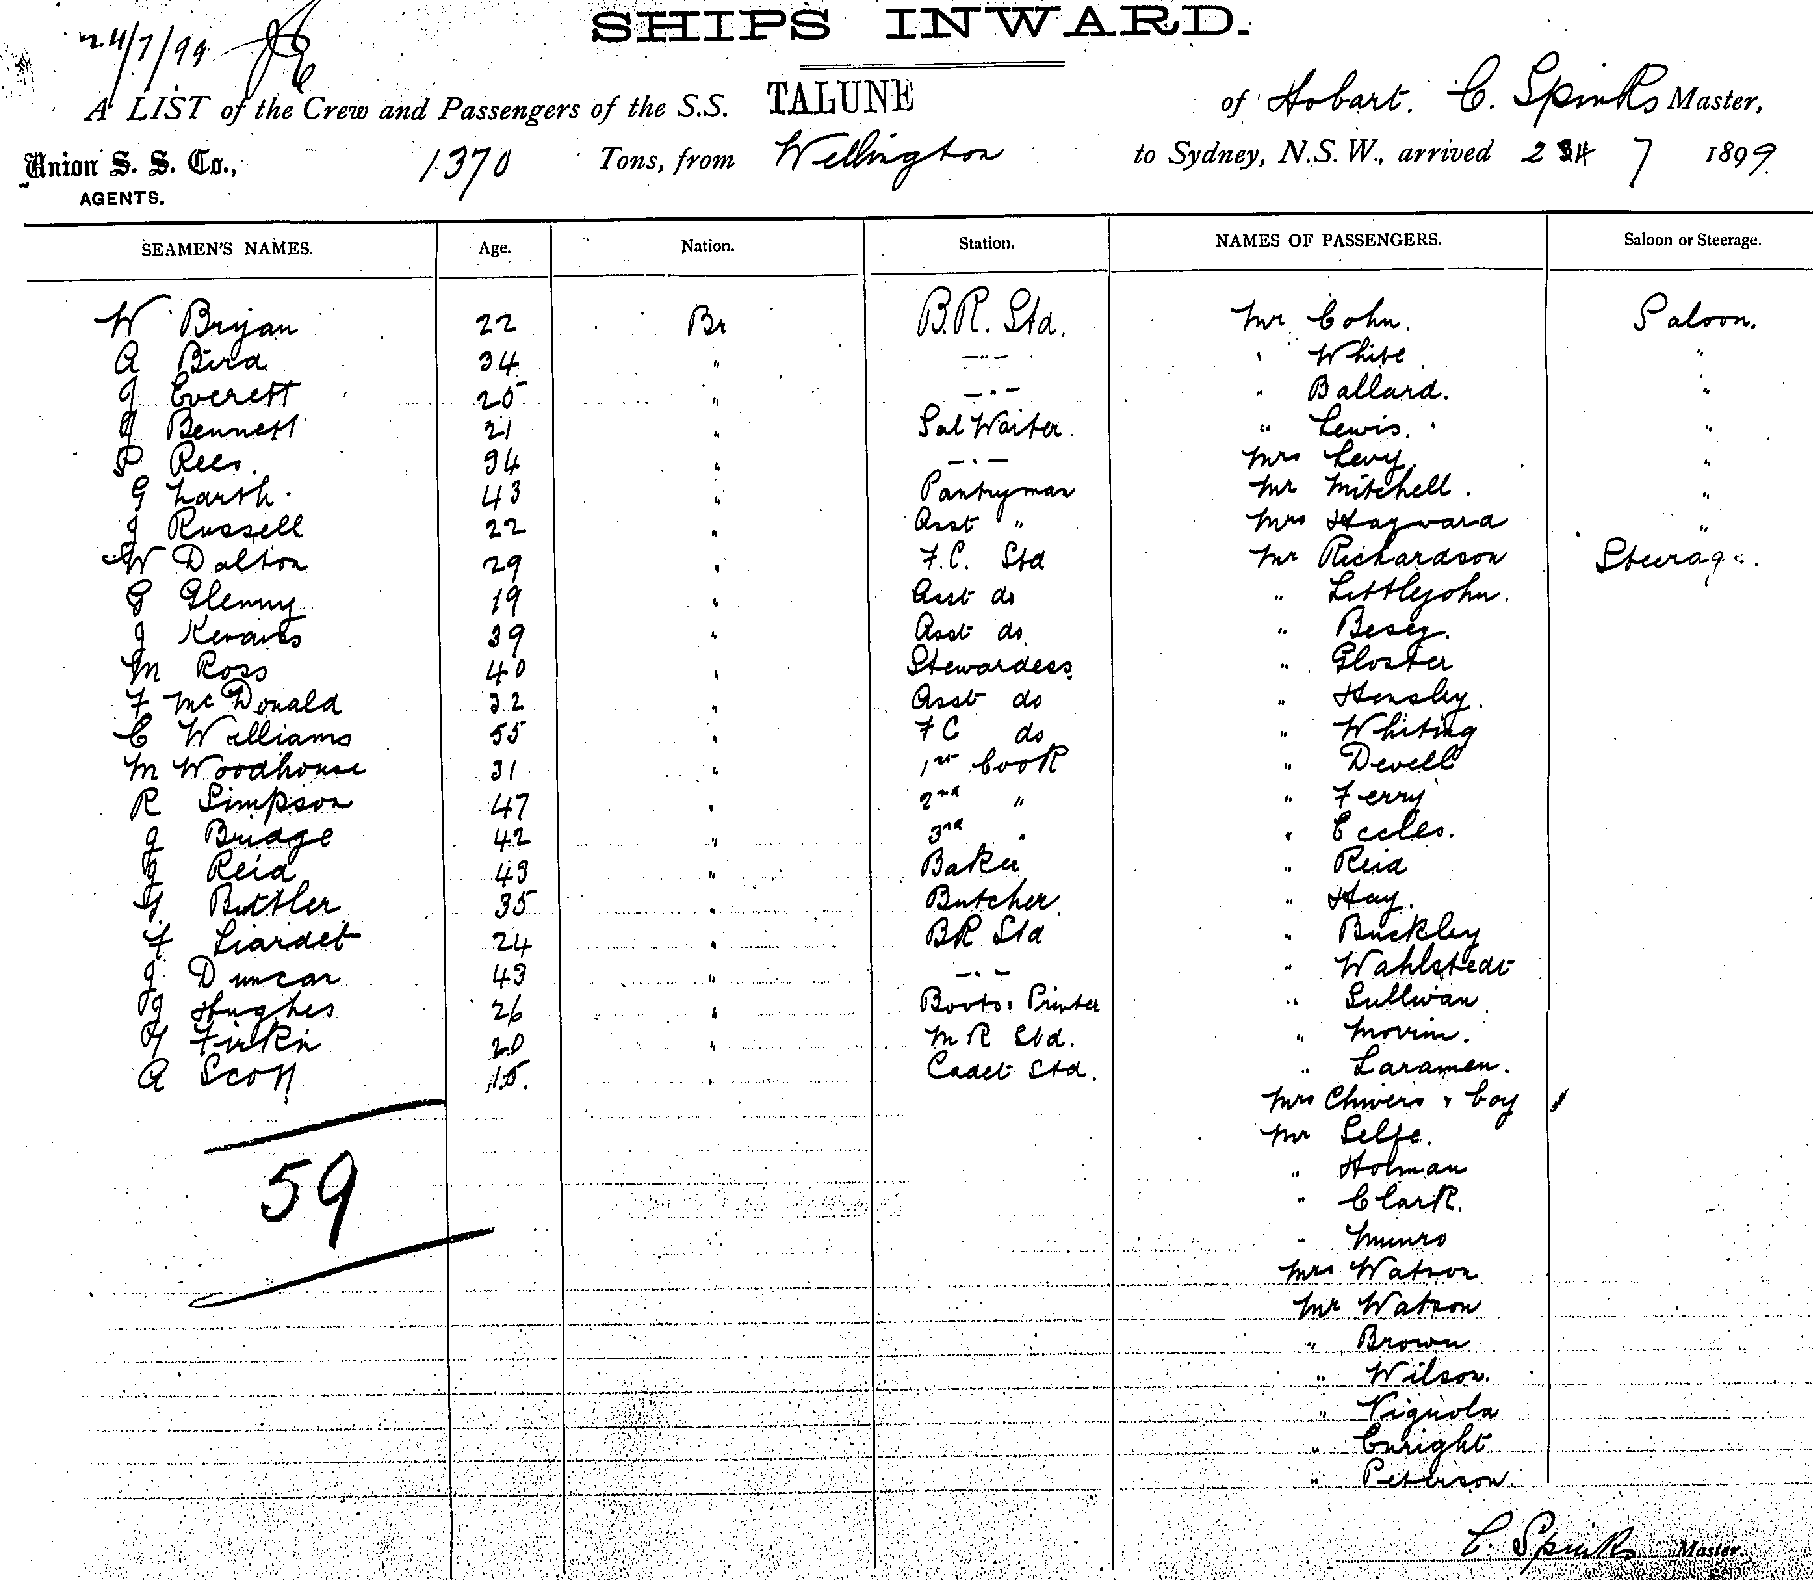 24/7/99
SHIPS INWARD.
A LIST of the Crew and Passengers of the S.S. TALUNE of Hobart. C. Spinks Master,
Union S. S. Co., 1370 Tons, from Wellington to Sydney, N.S.W., arrived 24 7 1899
AGENTS.
SEAMEN'S NAMES. Age. Nation. Station. NAMES OF PASSENGERS. Saloon or Steerage.
W Bryan 22 Br B.R. Std. Mr Cohn. Saloon.
A Bird 34 " —"— " White "
J Everett 25 " —"— " Ballard. "
Bennett 21 " Sal Waiter. " Lewis. "
P Rees. 34 " —"— Mrs Levy "
G Larth. 43 " Pantryman Mr Mitchell. "
J Russell 22 " Asst " Mrs Hayward "
W Dalton 29 " F.C. Std Mr Richardson Steerage.
G Glenny 19 " Asst do " Littlejohn.
J 39 " Asst do " Besey.
M Ross 40 " Stewardess " Gloster
F McDonald 32 " Asst do " Hensley.
C Williams 55 " FC do " Whiting
M Woodhouse 31 " 1st Cook " Devell
R Simpson 47 " 2nd " " Ferry
J Bridge 42 " 3rd " " Eccles.
Reid 43 " Baker " Reid
Buttler 35 " Butcher. " Hay.
F Liardet 24 " BR Std " Buckley
J Duncan 43 " —"— " Wahlstedt
Hughes 26 " Boots & Printer " Sullivan
H Firkin 20 " M R Std. " Movrin.
A Scott 15. " Cadet Std. " Laramen.
Mrs Chivers & boy 1
Mr Selfe.
59 " Holman
" Clark.
" Munro
Mrs Watson
Mr Watson
" Brown
" Wilson.
" Vignola
" Enright
" Peterson.
C. Spinks Master.